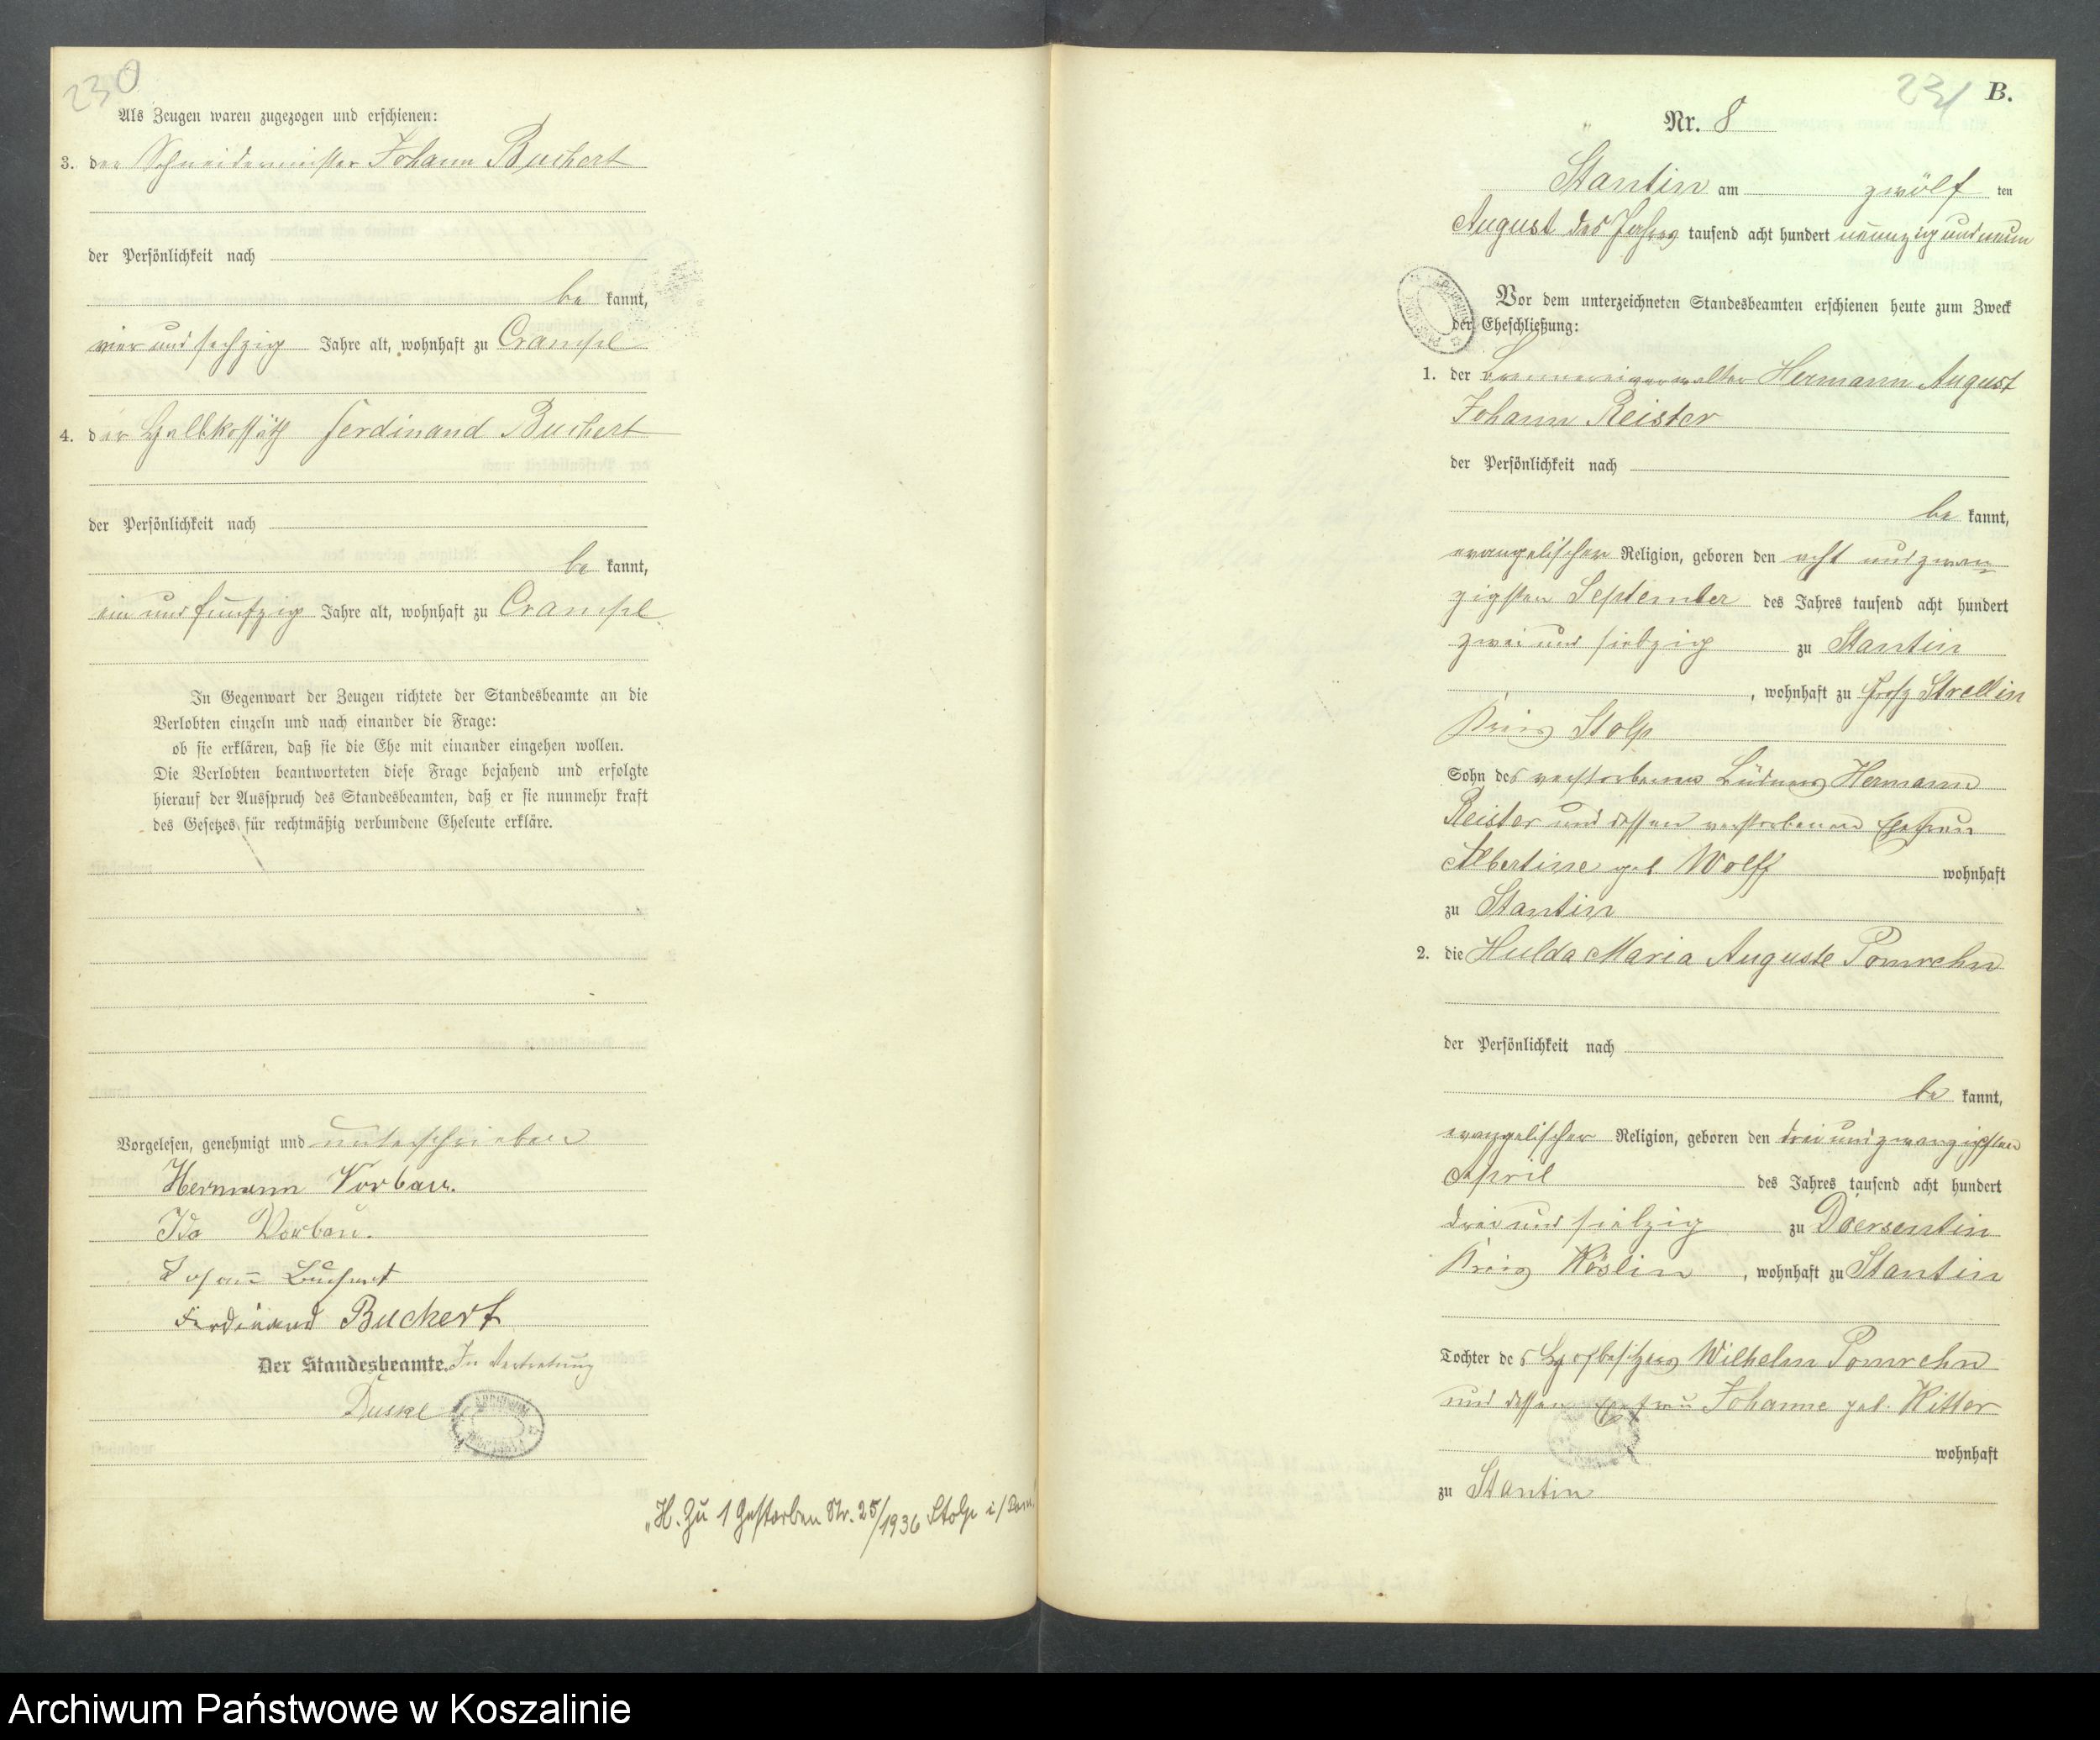 230
Als Zeugen waren zugezogen und erschienen:
3. der Schneidermeister Johann Buchert
der Persönlichkeit nach
be kannt,
vier und sechzig Jahre alt, wohnhaft zu Crampel
4. der Halbkossäth Ferdinand Buchert
der Persönlichkeit nach
be kannt,
ein und funfzig Jahre alt, wohnhaft zu Crampel
In Gegenwart der Zeugen richtete der Standesbeamte an die
Verlobten einzeln und nach einander die Frage:
ob sie erklären, daß sie die Ehe mit einander eingehen wollen.
Die Verlobten beantworteten diese Frage bejahend und erfolgte
hierauf der Ausspruch des Standesbeamten, daß er sie nunmehr kraft
des Gesetzes für rechtmäßig verbundene Eheleute erkläre.
Vorgelesen, genehmigt und unterschrieben
Hermann Vorbau.
Ida Vorbau.
Johann Buchert
Ferdinand Buchert
Der Standesbeamte. In Vertretung
"H. Zu 1 Gestorben Nr. 25/1936 Stolp i/Pom.
231 B.
Nr. 8
Stantin am zwölf ten
August des Jahres tausend acht hundert neunzig und neun
Vor dem unterzeichneten Standesbeamten erschienen heute zum Zweck
der Eheschließung:
1. der Brennereiverwalter Hermann August
Johann Reister
der Persönlichkeit nach
be kannt,
evangelischer Religion, geboren den acht und zwan-
zigsten September des Jahres tausend acht hundert
zwei und siebzig zu Stantin
, wohnhaft zu Groß Strellin
Kreis Stolp
Sohn des verstorbenen Büdners Hermann
Reister und dessen verstorbenen Ehefrau
Albertine geb Wolff wohnhaft
zu Stantin
2. die Hulda Maria Auguste Pomrehn
der Persönlichkeit nach
be kannt,
evangelischer Religion, geboren den drei und zwanzigsten
April des Jahres tausend acht hundert
drei und siebzig zu Doersentin
Kreis Köslin, wohnhaft zu Stantin
Tochter des Hofbesitzers Wilhelm Pomrehn
und dessen Ehefrau Johanne geb. Ritter
wohnhaft
zu Stantin
Archiwum Państwowe w Koszalinie